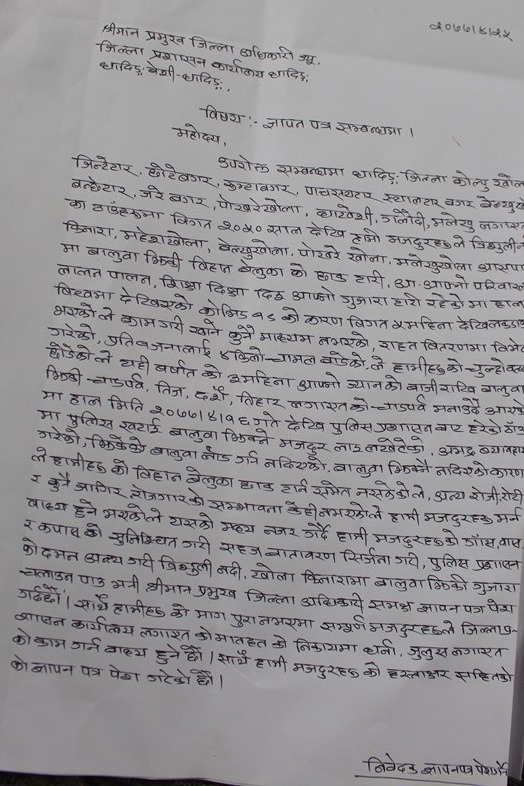 २०७७।४।२५
श्रीमान प्रमुख जिल्ला अधिकारी ज्यू,
जिल्ला प्रशासन कार्यालय धादिङ,
धादिङ बेशी-धादिङ,
विषय:- ज्ञापन पत्र सम्बन्धमा।
महोदय,
उपरोक्त सम्बन्धमा धादिङ जिल्ला कोल्पु खोला
पोखरेखोला, मलेखु लगायत
का ठाउँहरूमा विगत २०५० साल देखि हामी मजदुरहरूले त्रिशुलीन
किनारा, महेशखोला, बेल्खुखोला, पोखरे खोला, मलेखुखोला आसपा
मा बालुवा झिकी विहान बेलुका को छाक टारी, आ-आफ्नो परिवारल
लालन पालन, शिक्षा दिक्षा दिइ आफ्नो गुजारा गरी रहेको मा हाल
विश्वमा देखिएको कोभिड १९ को कारण विगत ४महिना देखि
भएकोले काम गरी खाने कुनै माध्यम नभएको, राहत वितरणमा विभेद
गरेको, ४ किलो चामल बाँडेको, ले हामीहरू को
यही वर्षात को ३महिना आफ्नो ज्यानको बाजी राखि बालुवा
झिकी चाडपर्व, तिज, दशैं, तिहार लगायत को चाडपर्व मनाउँदै आएको
मा हाल मिति २०७७।४।१६ गते देखि पुलिस प्रशासन बाट
मा पुलिस खटाई बालुवा झिक्ने मजदुर लाइ अभद्र व्यवहार
गरेको, झिकेको बालुवा लोड गर्न नदिएको, बालुवा झिक्नै नदिएको कारण
ले हामीहरू को विहान बेलुका छाक टार्न समेत नसकेकोले, अन्य रोजीरोटी
र कुनै जागिर रोजगारको सम्भावना केही नभएकोले हामी मजदुरहरू मर्न
बाध्य हुने भएकोले यसको मध्य नजर गर्दै हामी मजदुरहरू को गाँस, वास
र कपास को सुनिश्चित गरी सहज वातावरण सिर्जना गरी, पुलिस प्रशासन
को दमन अन्त्य गरी त्रिशुली नदी, खोला किनारामा बालुवा झिकी गुजारा
चलाउन पाउ भनी श्रीमान प्रमुख जिल्ला अधिकारी समक्ष ज्ञापन पत्र पेश
गर्दछौं। साथै हामीहरू को माग पुरा नभएमा सम्पूर्ण मजदुरहरूले जिल्ला प्र-
शासन कार्यालय लगायत को मातहत को निकायमा धर्ना, जुलुस लगायत
को काम गर्न बाध्य हुने छौं। साथै हामी मजदुरहरू को हस्ताक्षर सहितको
को ज्ञापन पत्र पेश गरेको छौं।
निवेदक ज्ञापनपत्र पेशगर्ने